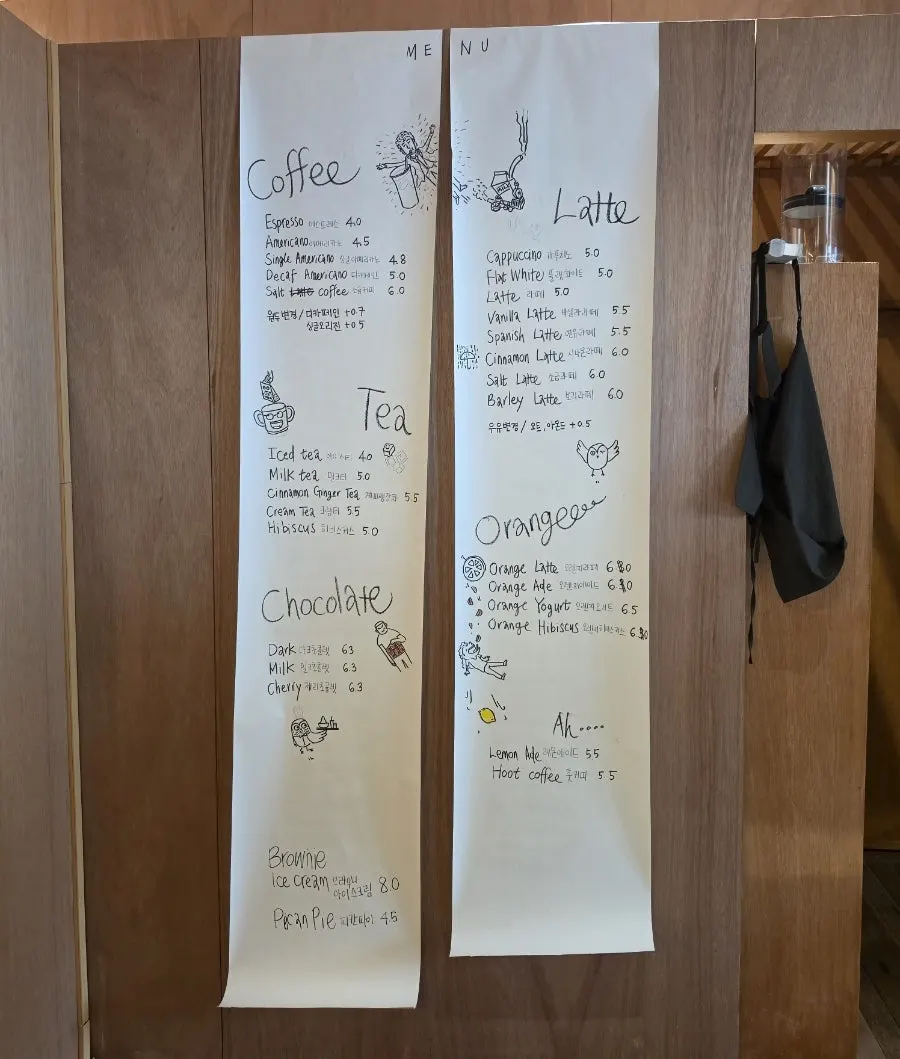 MENU
Coffee
Espresso 에스프레소 4.0
Americano 아메리카노 4.5
Single Americano 싱글아메리카노 4.8
Decaf Americano 디카페인 5.0
Salt coffee 소금커피 6.0
원두변경 / 디카페인 +0.7
싱글오리진 +0.5
Tea
Iced tea 아이스티 4.0
Milk tea 밀크티 5.0
Cinnamon Ginger Tea 5.5
Cream Tea 크림티 5.5
Hibiscus 히비스커스 5.0
Chocolate
Dark 다크초콜렛 6.3
Milk 밀크초콜렛 6.3
Cherry 체리초콜렛 6.3
Brownie
ice cream 브라우니 아이스크림 8.0
Pecan Pie 피칸파이 4.5
MILK
Latte
Cappuccino 카푸치노 5.0
Flat White 플랫화이트 5.0
Latte 라떼 5.0
Vanilla Latte 바닐라라떼 5.5
Spanish Latte 연유라떼 5.5
Cinnamon Latte 시나몬라떼 6.0
Salt Latte 소금라떼 6.0
Barley Latte 보리라떼 6.0
우유변경 / 오트, 아몬드 +0.5
Orangeeee
Orange Latte 오렌지라떼 6.0
Orange Ade 오렌지에이드 6.0
Orange Yogurt 오렌지요거트 6.5
Orange Hibiscus 오렌지히비스커스 6.0
Ah....
Lemon Ade 레몬에이드 5.5
Hoot coffee 훗커피 5.5